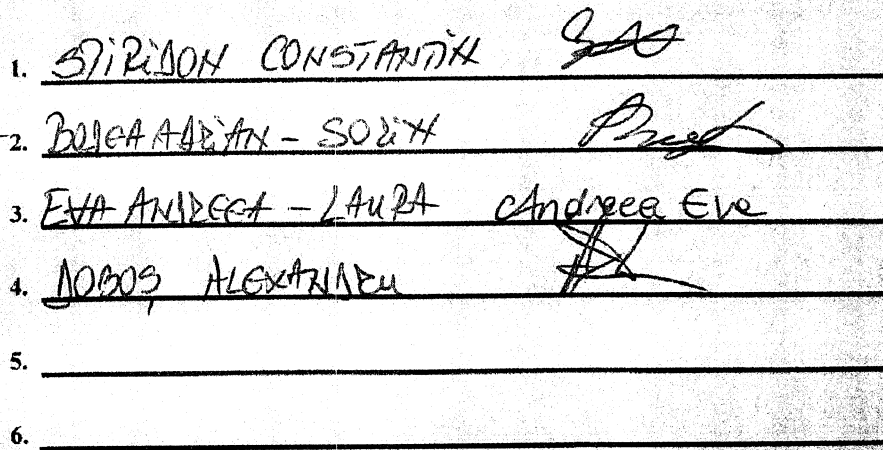 1. SPIRIDON CONSTANTIN
2. BODEA ADRIAN - SORIN
3. EVA ANDREEA - LAURA Andreea Eva
4. DOBOȘ ALEXANDRU
5.
6.